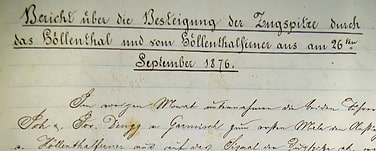 Bericht über die Besteigung der Zugspitze durch
das Höllenthal und vom Höllenthalferner aus am 26ten
September 1876.
Im vorigen Monat unternahmen die beiden Führer
Joh. & Jos. Dengg v. Garmisch zum ersten Male
Höllenthalferner aus auf das